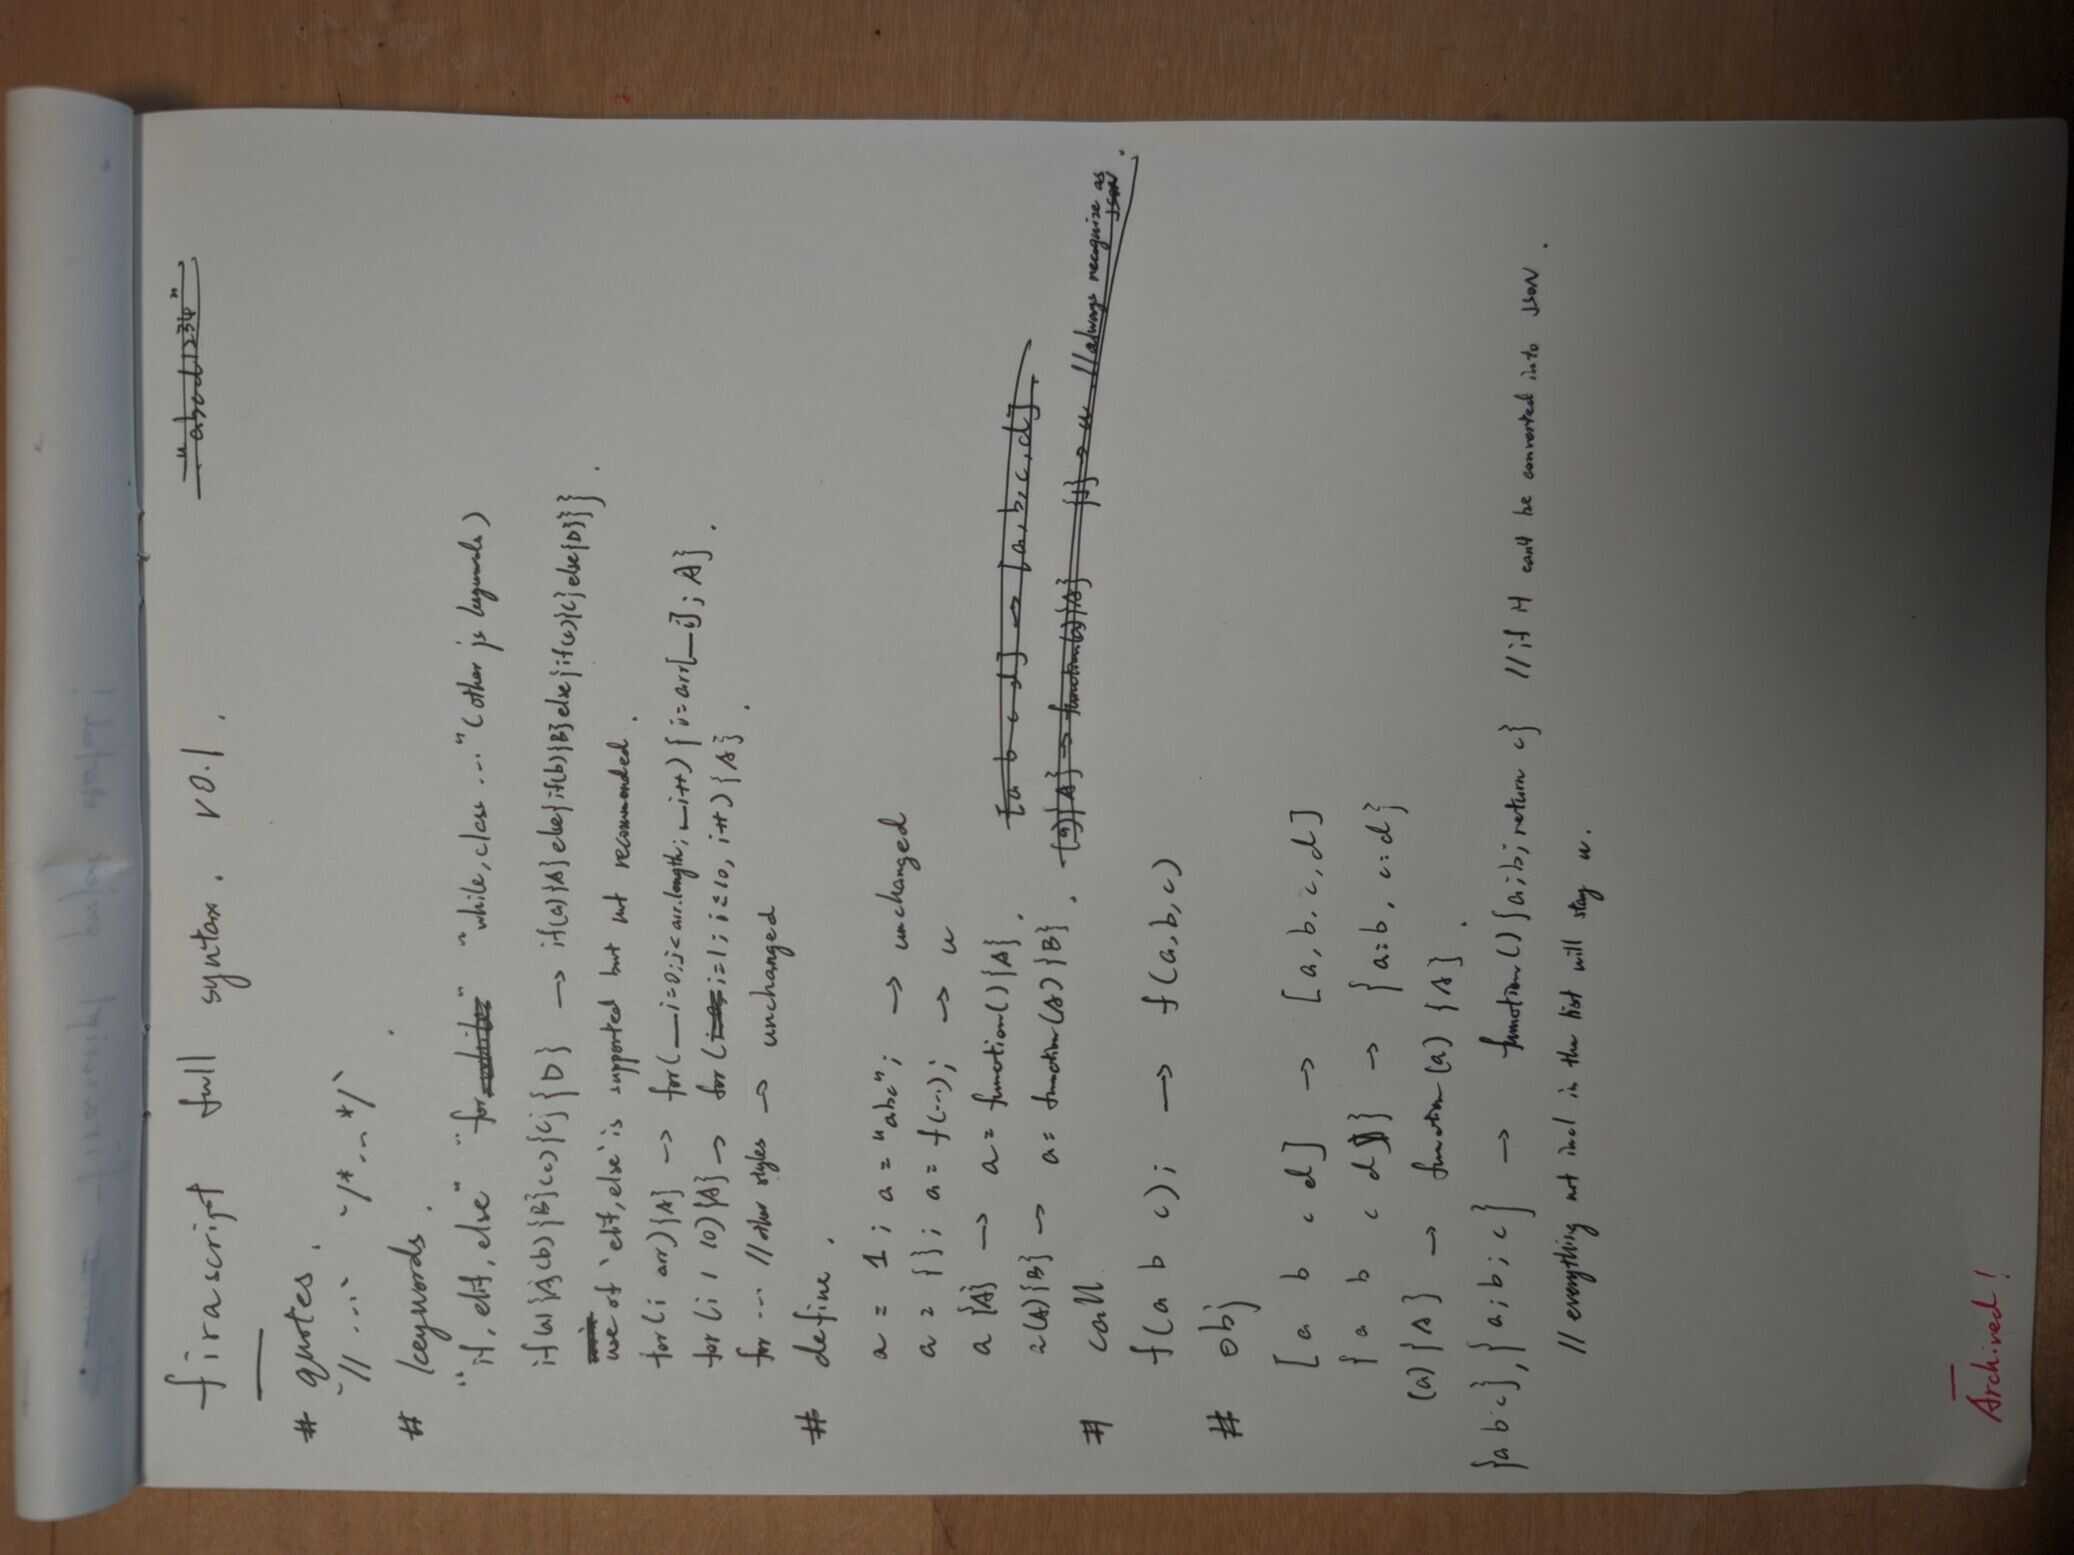 firascript full syntax. v0.1.
"abcd1234"
# quotes.
`// ...` `/*...*/`
# keywords.
"if, elif, else" "for while" "while, class ..." (other js keywords)
if(a){A}(b){B}(c){C}{D} → if(a){A}else{if(b){B}else{if(c){C}else{D}}}.
use of `elif, else` is supported but not recommended.
for(i arr){A} → for(__i=0;i<arr.length;__i++){i=arr[__i]; A}.
for(i 1 10){A} → for(i=1; i≤10, i++){A}.
for ... // other styles → unchanged
# define.
a = 1; a = "abc"; → unchanged
a = {}; a = f(...); → u
a {A} → a = function(){A}.
[a b c d] → [a, b, c, d]
a(A){B} → a = function(A){B}.
(a){A} → function(a){A} {} → u // always recognize as JSON.
# call
f(a b c); → f(a, b, c)
# obj
[a b c d] → [a, b, c, d]
{a b c d} → {a:b, c:d}
(a){A} → function(a){A}.
{a b c}, {a; b; c} → function(){a; b; return c} // if it can't be converted into JSON.
// everything not incl in the list will stay u.
Archived!